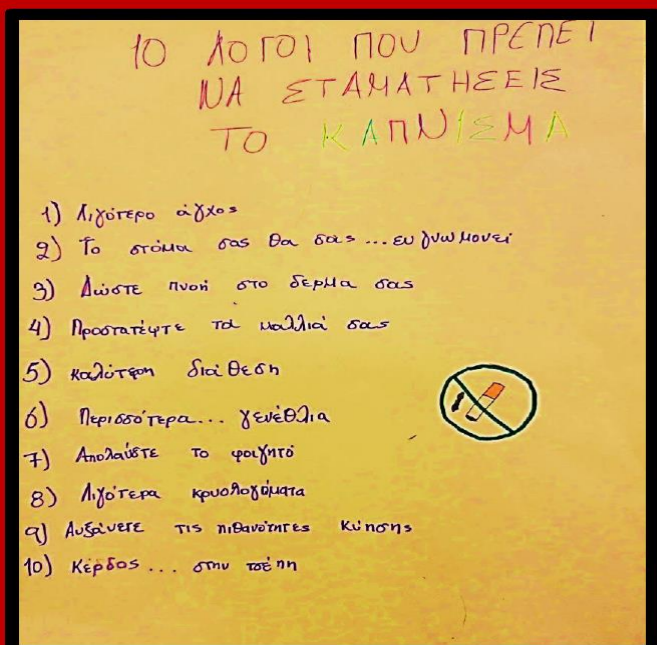 10 ΛΟΓΟΙ ΠΟΥ ΠΡΕΠΕΙ
ΝΑ ΣΤΑΜΑΤΗΣΕΙΣ
ΤΟ ΚΑΠΝΙΣΜΑ
1) Λιγότερο άγχος
2) Το στόμα σας θα σας...ευγνωμονεί
3) Δώστε πνοή στο δερμα σας
4) Προστατέψτε τα μαλλιά σας
5) καλύτερη διάθεση
6) Περισσότερα... γενέθλια
7) Απολαύστε το φαγητό
8) Λιγότερα κρυολογήματα
9) Αυξάνετε τις πιθανότητες κύησης
10) Κέρδος... στην τσέπη